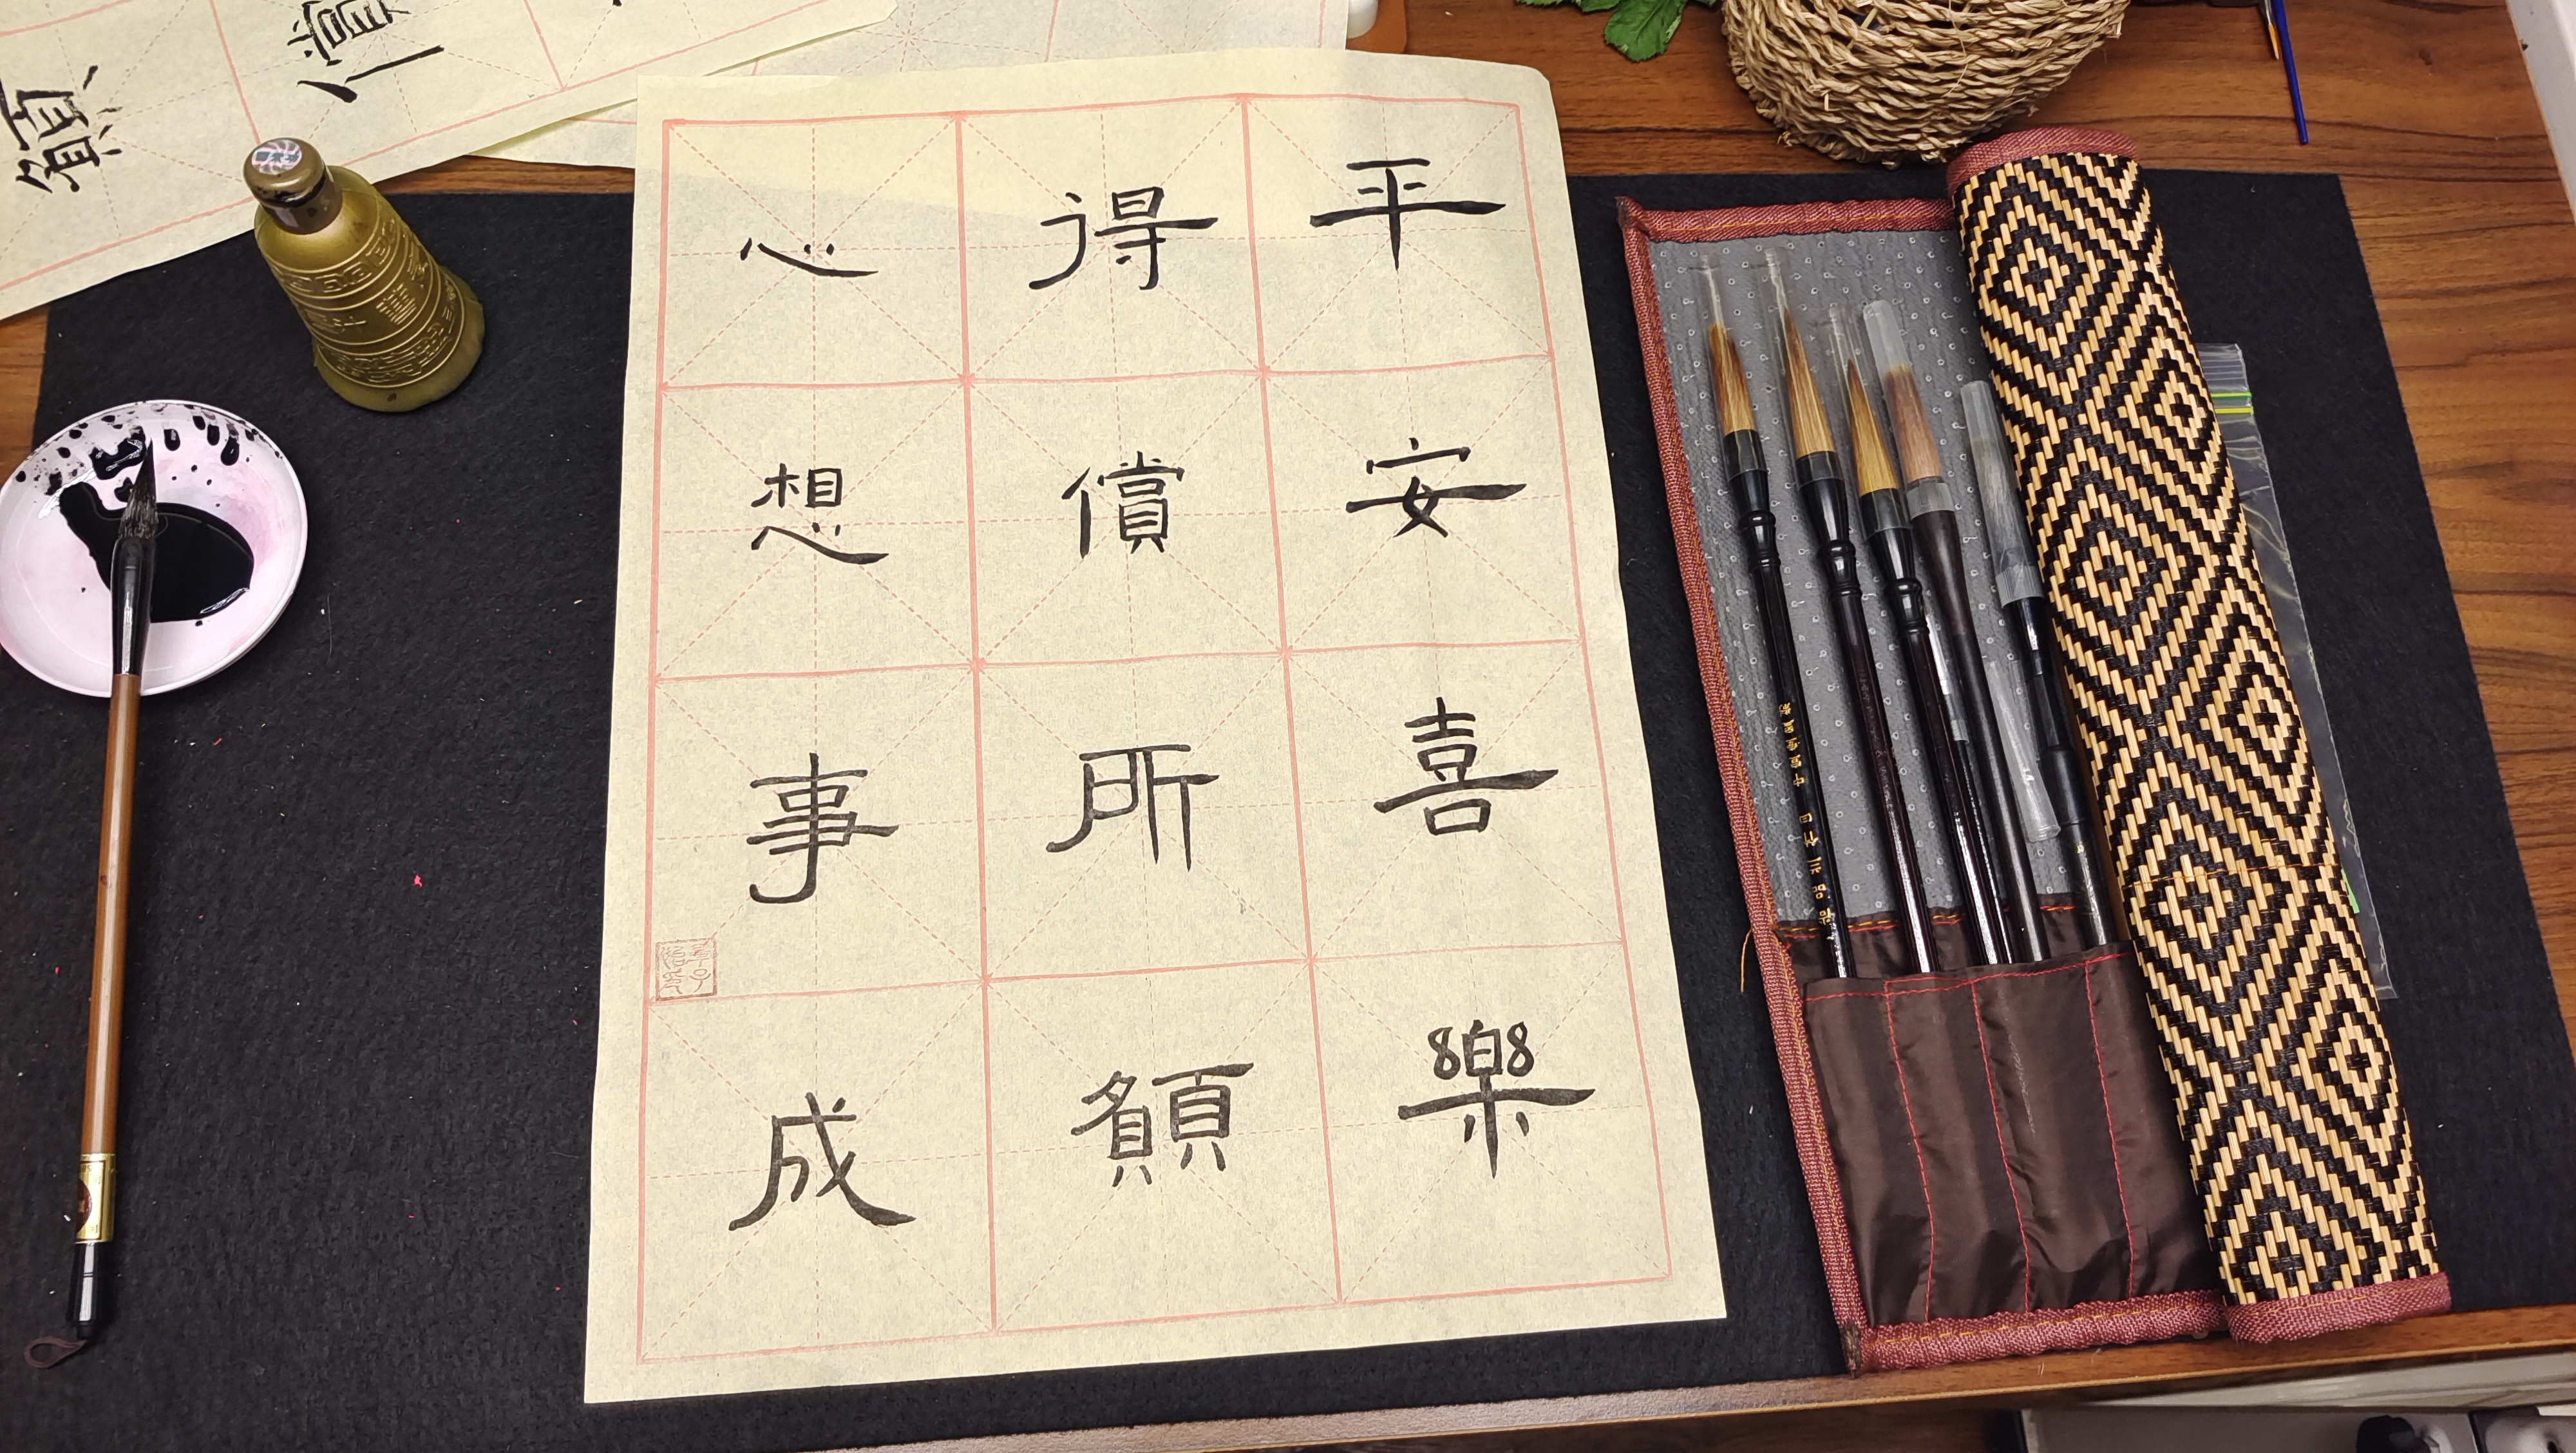 平安喜樂
得償所願
心想事成
償